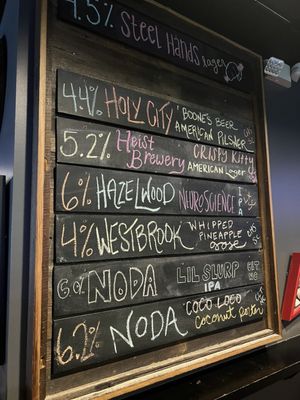 4.5% Steel Hands Lager
4.4% HOLY CITY 'BOONE'S BEER'
AMERICAN PILSNER
5.2% Heist Brewery CRISPY Kitty
AMERICAN Lager
6% HAZELWOOD NEUROSCIENCE IPA
4% WESTBROOK WHIPPED
PINEAPPLE
Gose
6.0% NODA LIL SLURP
IPA
6.2% NODA 'COCO LOCO
coconut porter